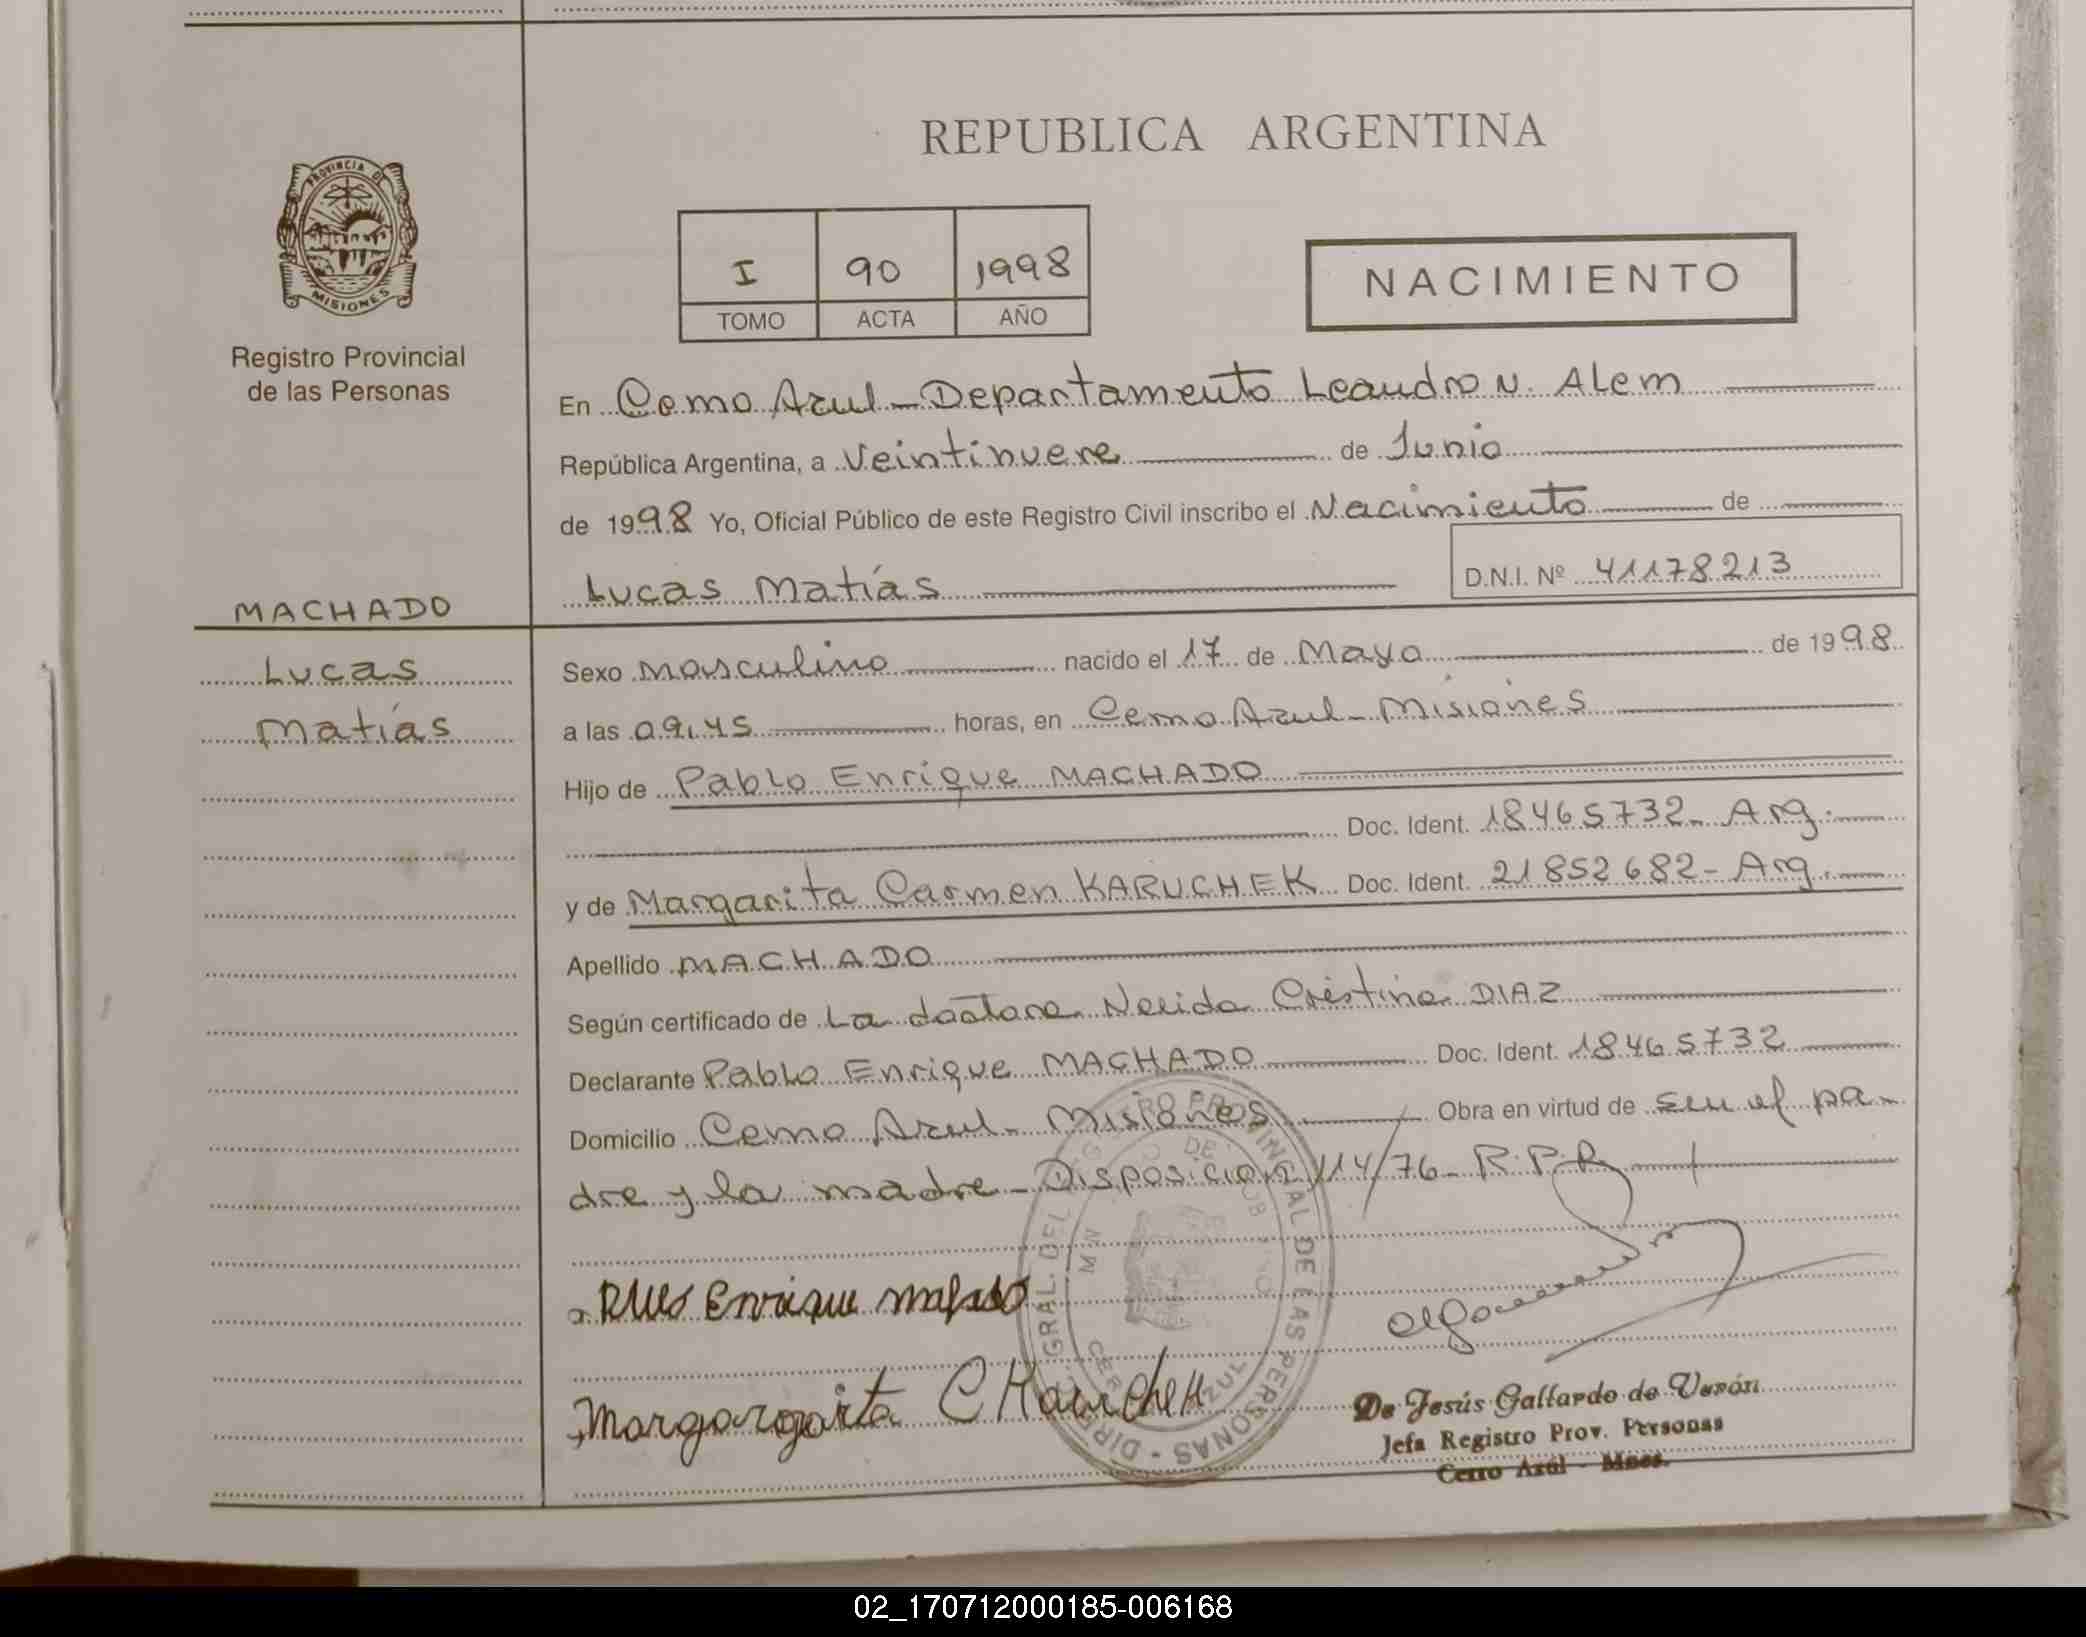 REPUBLICA ARGENTINA
PROVINCIA DE
MISIONES
Registro Provincial
de las Personas
I 90 1998
TOMO ACTA AÑO
NACIMIENTO
En Cerro Azul - Departamento Leandro N. Alem
República Argentina, a Veintinueve de Junio
de 1998 Yo, Oficial Público de este Registro Civil inscribo el Nacimiento de
Lucas Matías D.N.I. Nº 41178213
MACHADO
Lucas
Matías
Sexo masculino nacido el 17 de Mayo de 1998
a las 09,45 horas, en Cerro Azul - Misiones
Hijo de Pablo Enrique MACHADO
Doc. Ident. 18465732 - Arg.
y de Margarita Carmen KARUCHEK Doc. Ident. 21852682 - Arg.
Apellido MACHADO
Según certificado de La doctora Nelida Cristina DIAZ
Declarante Pablo Enrique MACHADO Doc. Ident. 18465732
Domicilio Cerro Azul - Misiones Obra en virtud de ser el pa-
dre y la madre - Disposicion 114/76 - R.P.P.
Enrique
Margargaita C
DIREC. GRAL. DEL REGISTRO PROVINCIAL DE LAS PERSONAS
CERRO AZUL
De Jesús Gallardo de Verón
Jefa Registro Prov. Personas
Cerro Azul - Mnes.
02_170712000185-006168